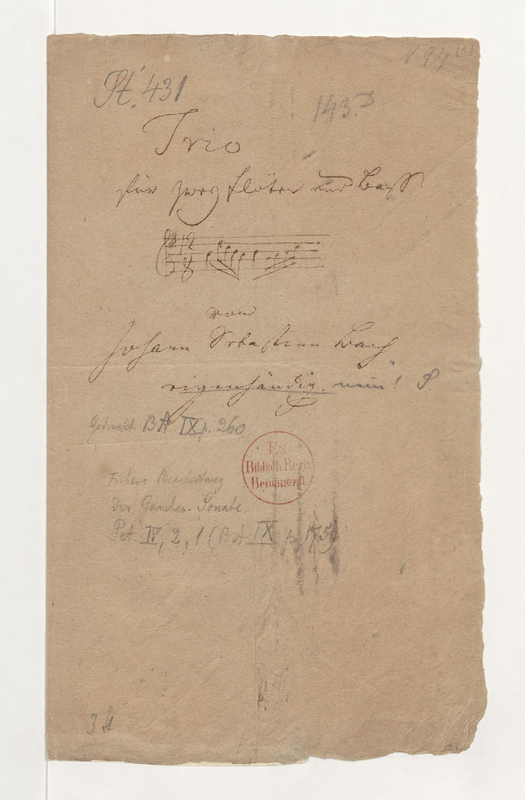 197 [1]
St. 431
143.
Trio
für zwey Flöten und Bass
12
8
von
Johann Sebastian Bach
eigenhändig. nein! S
Gedruckt BA IX p. 260
Ex
Biblioth. Regia
Berolinensi
Frühere Bearbeitung
der Gamben-Sonate
Pet. IV, 2, 1 (BA IX p. 175)
3